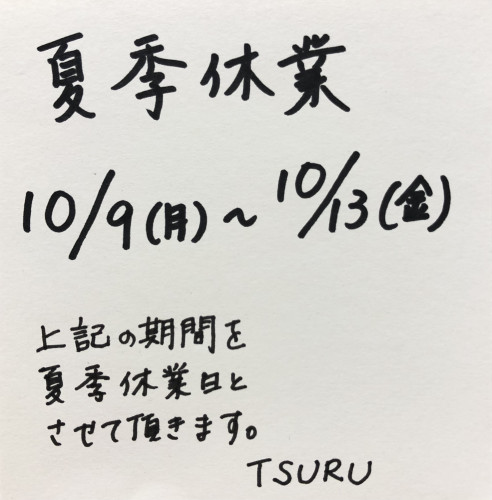 夏季休業
10/9(月)～10/13(金)
上記の期間を
夏季休業日と
させて頂きます。
TSURU